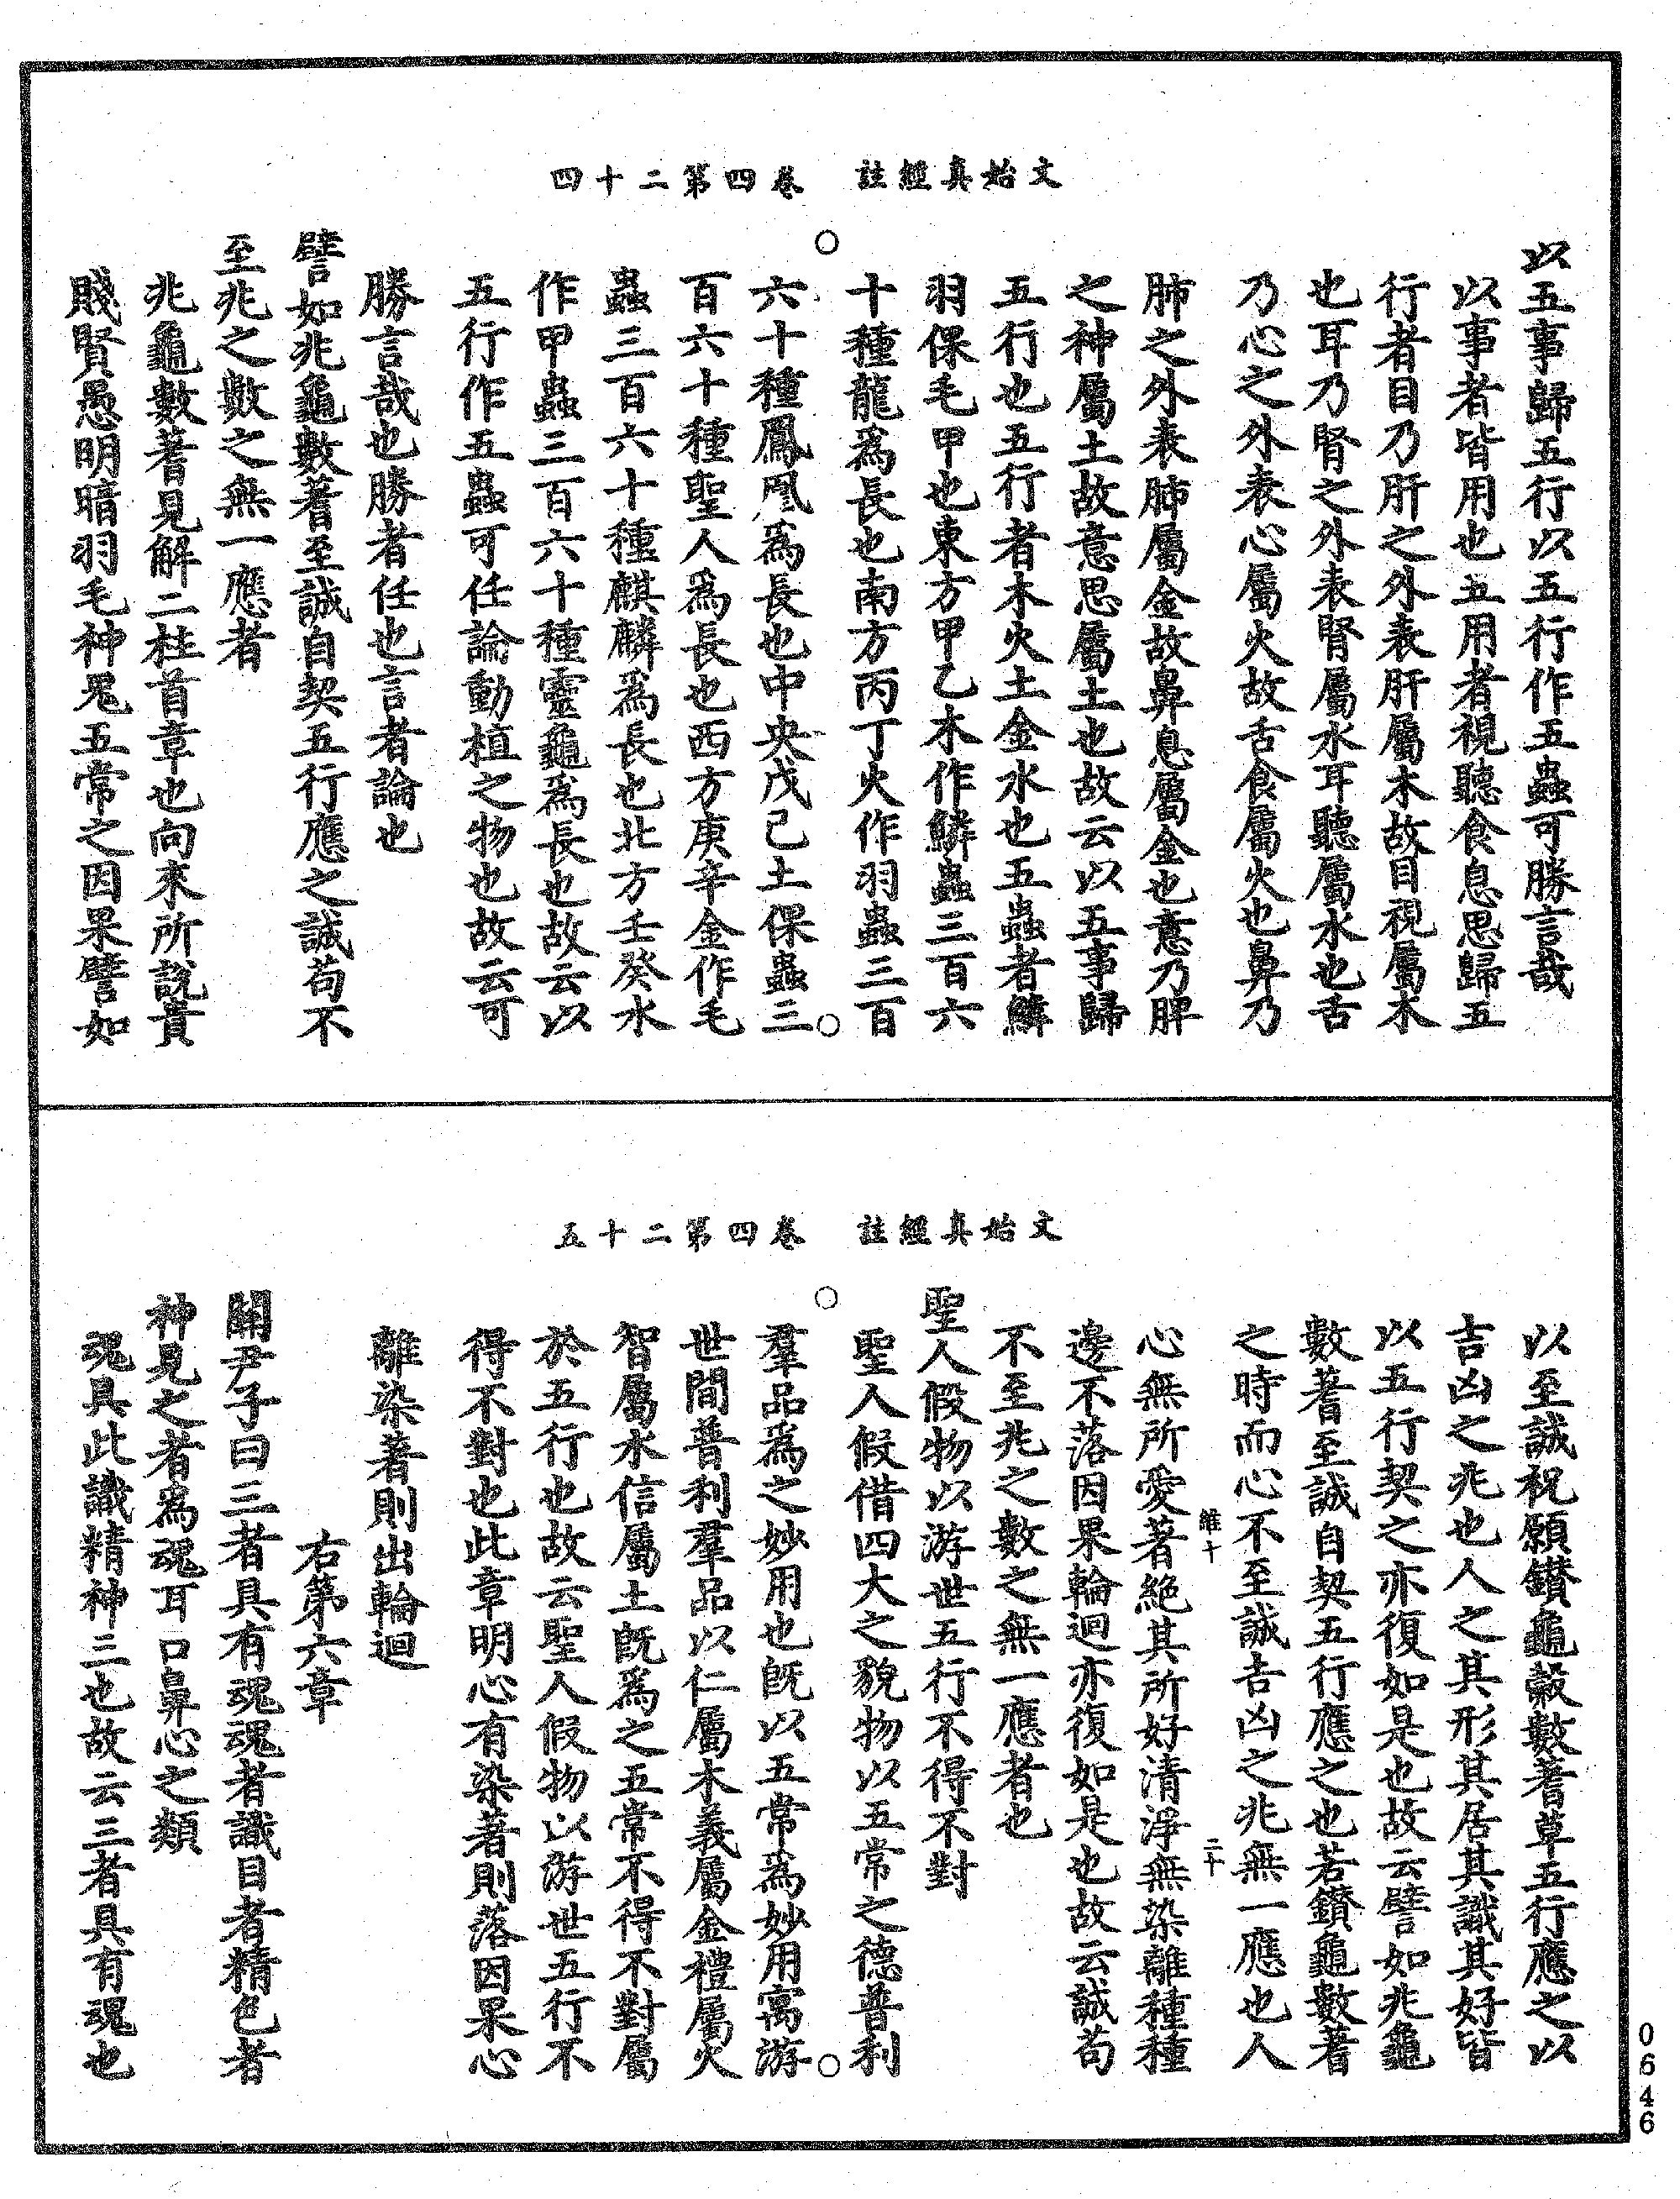 文始真經註　卷四第二十四
以五事歸五行以五行作五蟲可勝言哉
以事者皆用也五用者視聽食息思歸五
行者目乃肝之外表肝屬木故目視屬木
也耳乃腎之外表腎屬水耳聽屬水也舌
乃心之外表心屬火故舌食屬火也鼻乃
肺之外表肺屬金故鼻息屬金也意乃脾
之神屬土故意思屬土也故云以五事歸
五行也五行者木火土金水也五蟲者鱗
羽倮毛甲也東方甲乙木作鱗蟲三百六
十種龍爲長也南方丙丁火作羽蟲三百
六十種鳳凰爲長也中央戊己土倮蟲三
百六十種聖人爲長也西方庚辛金作毛
蟲三百六十種麒麟爲長也北方壬癸水
作甲蟲三百六十種靈龜爲長也故云以
五行作五蟲可任論動植之物也故云可
勝言哉也勝者任也言者論也
譬如兆龜數蓍至誠自契五行應之誠苟不
至兆之數之無一應者
兆龜數蓍見解二柱首章也向來所說貴
賤賢愚明暗羽毛神鬼五常之因果譬如
文始真經註　卷四第二十五
以至誠祝願鑽龜殼數蓍草五行應之以
吉凶之兆也人之其形其居其識其好皆
以五行契之亦復如是也故云譬如兆龜
數蓍至誠自契五行應之也若鑽龜數蓍
之時而心不至誠吉凶之兆無一應也人
心無所愛著絶其所好清淨無染離種種
邊不落因果輪迴亦復如是也故云誠苟
不至兆之數之無一應者也
聖人假物以游世五行不得不對
聖人假借四大之貌物以五常之德普利
羣品爲之妙用也旣以五常爲妙用寓游
世間普利羣品以仁屬木義屬金禮屬火
智屬水信屬土旣爲之五常不得不對屬
於五行也故云聖人假物以游世五行不
得不對也此章明心有染著則落因果心
離染著則出輪迴
右第六章
關尹子曰三者具有魂魂者識目者精色者
神見之者爲魂耳口鼻心之類
魂具此識精神三也故云三者具有魂也
二十
0646